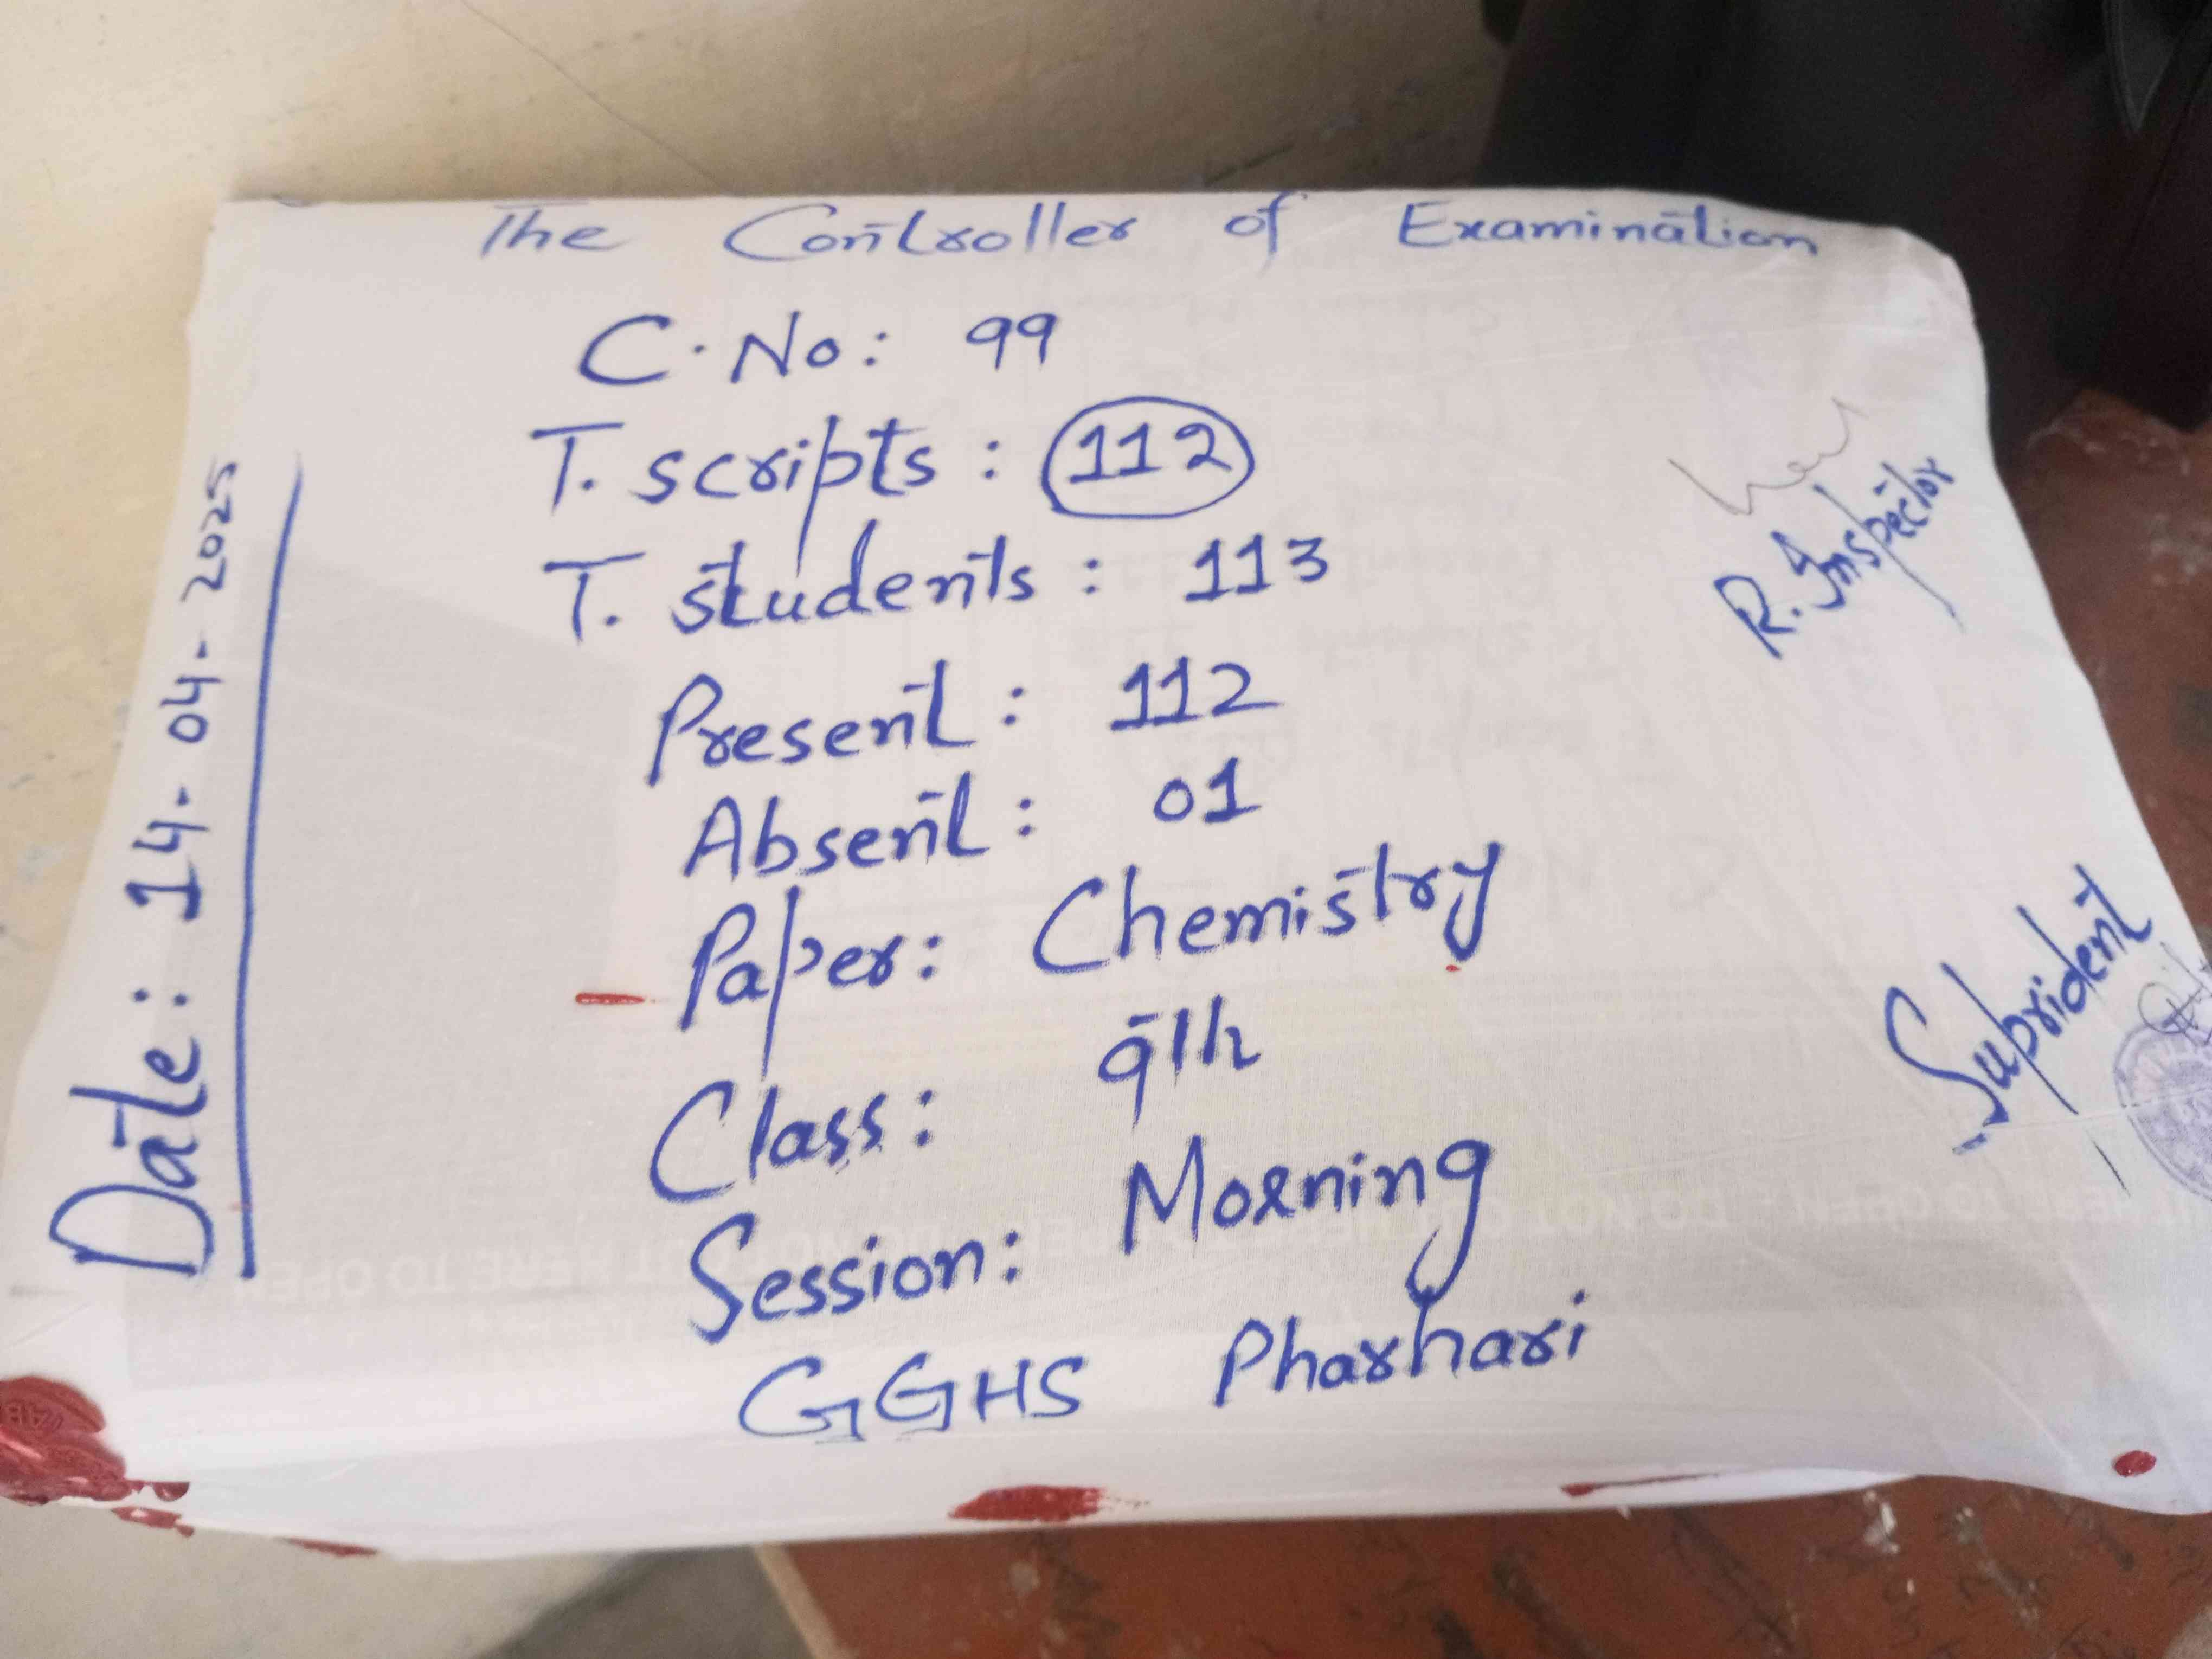 The Controller of Examination
C. No: 99
T. scripts : 112
T. students : 113
Present : 112
Absent : 01
Paper: Chemistry
Class: 9th
Session: Morning
GGHS Pharhari
Date: 14-04-2025
R. Inspector
Supridént